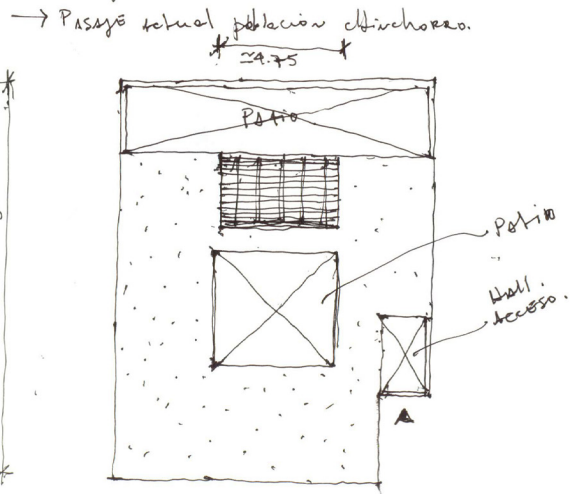 → PASAJE actual población chinchorro.
≃4.75
PATIO
PATIO
HALL.
ACCESO.